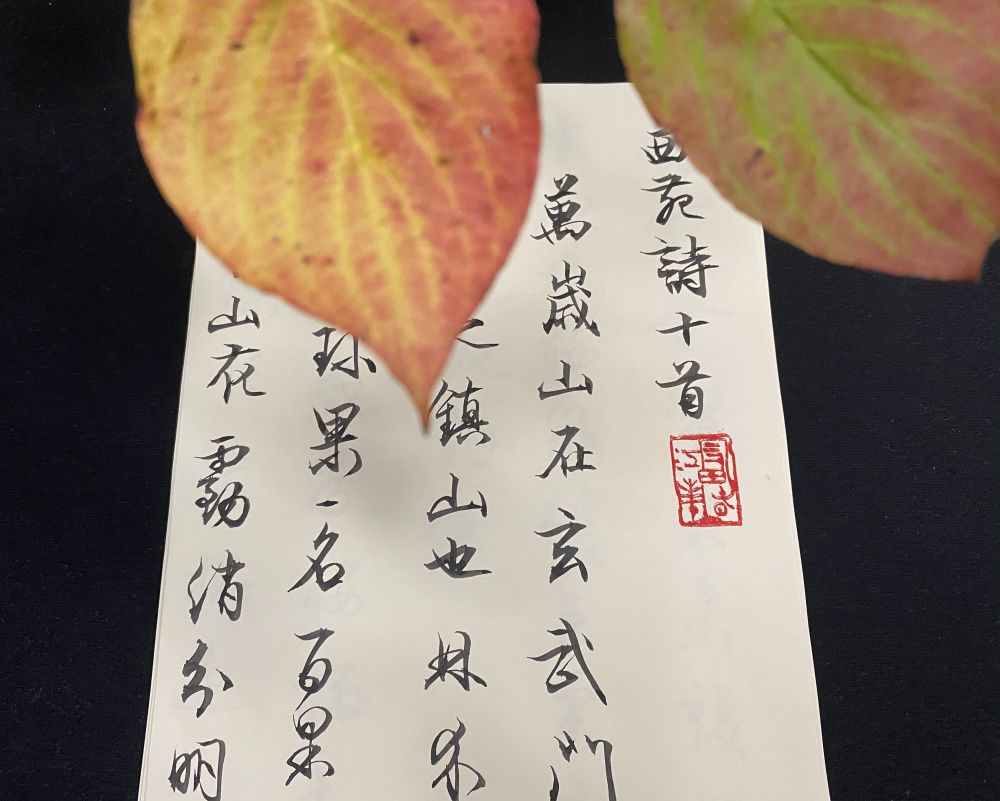 西苑詩十首
萬歲山在玄武門
之鎮山也
珎果一名百果
山花霧消分明